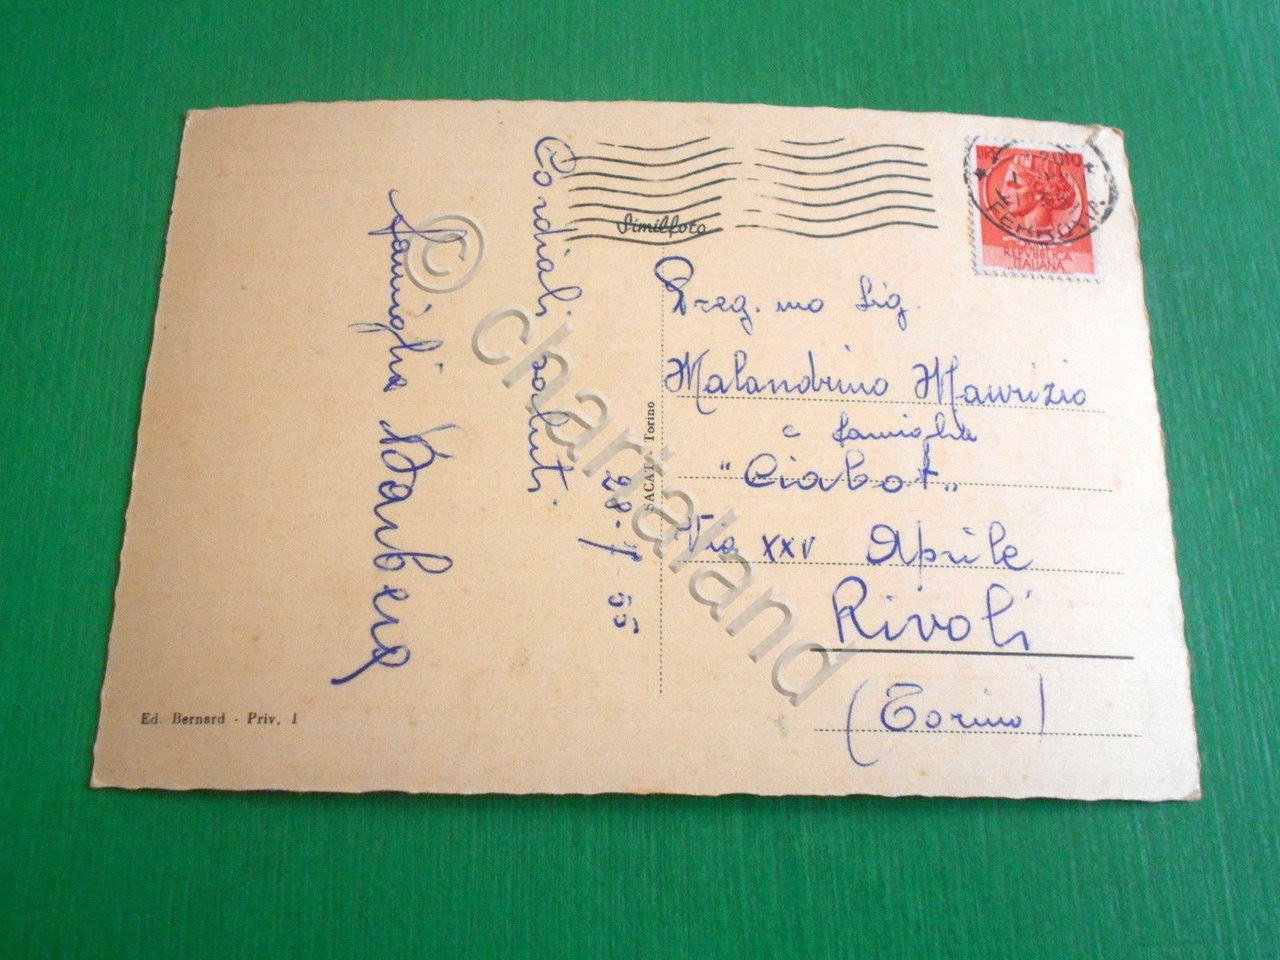 Cordiali saluti
28-7-55
famiglia Barbero
Ed. Bernard - Priv. 1
SACAT - Torino
Similfoto
REPVBBLICA
ITALIANA
Preg.mo Sig.
Malandrino Maurizio
e famiglia
"Ciabot"
Via XXV Aprile
Rivoli
(Torino)
© chartaland